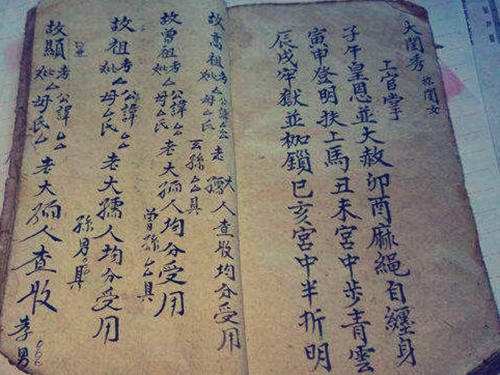 大閨秀 於閨女
上官掌
子午皇恩並大赦卯酉麻繩自纏身
寅申登明扶上馬丑未宮中步青雲
辰戌牢獄並枷鎖巳亥宮中半折明
故高祖考公諱厶厶老大人查收均分受用
妣厶母厶氏 孺
玄孫厶具
故曾祖考公諱厶厶老大孺人均分受用
妣厶母厶氏
曾孫厶具
故祖考公諱厶厶老大孺人均分受用
妣厶母厶氏
孫男具
故顯考公諱厶厶老大孺人查收
妣厶母氏
孝男厶厶厶